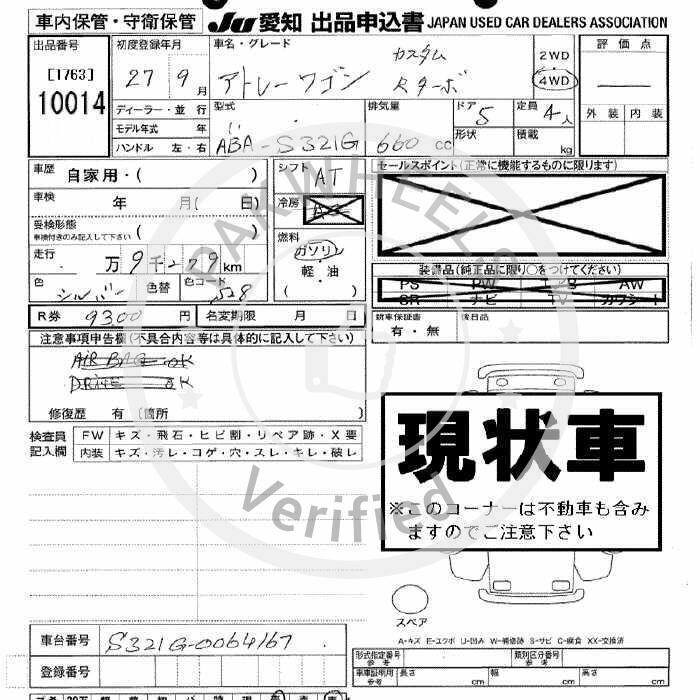 車内保管・守衛保管 JU 愛知 出品申込書 JAPAN USED CAR DEALERS ASSOCIATION
出品番号 初度登録年月 車名・グレード 評価点
[1763] 27年9月 アトレーワゴン カスタム 2WD
10014 Rターボ 4WD
ディーラー・並行 型式 排気量 ドア 定員 外装 内装
モデル年式 年 5 4人
ハンドル 左・右 ABA-S321G 660cc 形状 積載 kg
車歴 自家用・( ) シフト AT セールスポイント(正常に機能するものに限ります)
車検 年 月( 日) 冷房
受検形態
車検付きのみ記入して下さい ( ) 燃料
走行 万9千279km ガソリン
軽・油
( )
装備品(純正品に限り○をつけてください)
PS PW エアB AW
SR ナビ TV カワシート
色 シルバー 色替 色コード S28
R券 9300円 名変期限 月 日 新車保証書 後日品
有・無
注意事項申告欄(不具合内容等は具体的に記入して下さい)
AIR BAG OK
DRIVE OK
修復歴 有(箇所 )
検査員 FW キズ・飛石・ヒビ割・リペア跡・X要
記入欄 内装 キズ・汚レ・コゲ・穴・スレ・キレ・破レ
現状車
※このコーナーは不動車も含み
ますのでご注意下さい
スペア
A-キズ E-エクボ U-凹み W-補修跡 S-サビ C-腐食 XX-交換済
車台番号 S321G-0064167
登録番号
形式指定番号 参考 類別区分番号 参考
車庫証明用 参考 長さ cm 幅 cm 高さ cm
PAKWHEELS
Verified